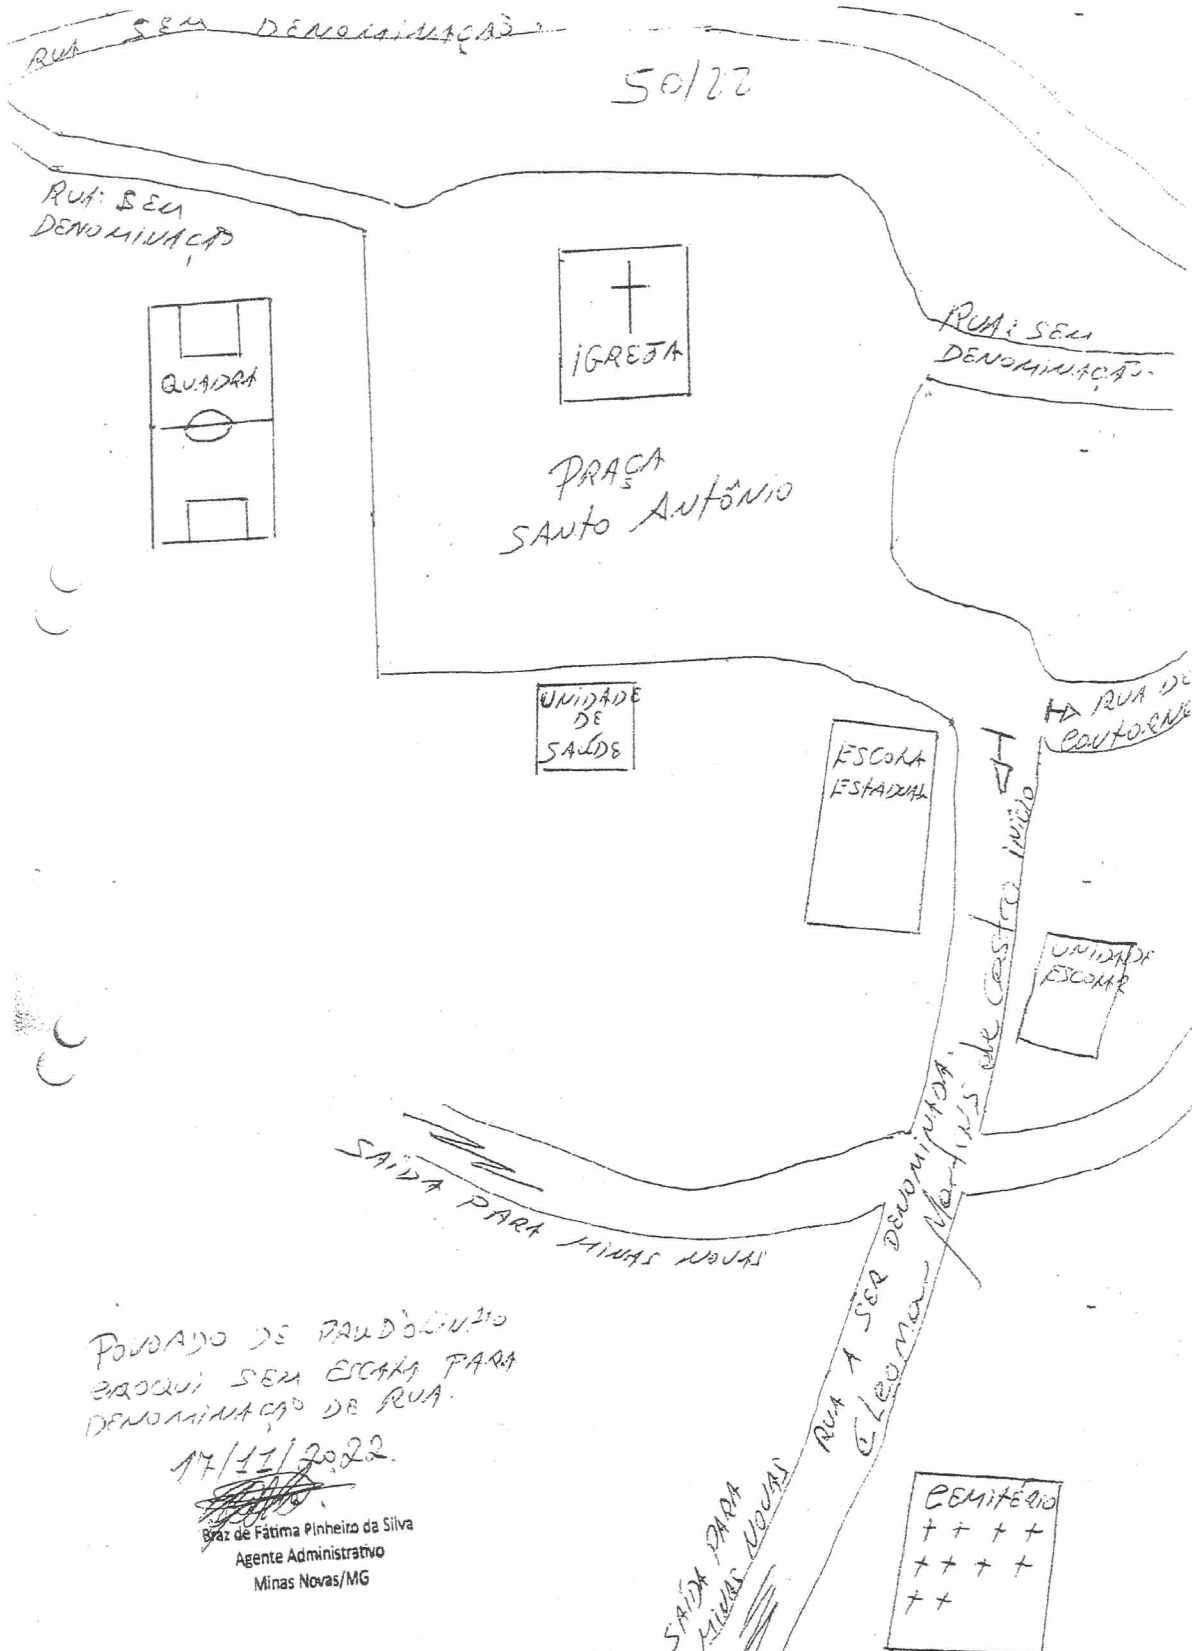 RUA SEM DENOMINAÇÃO
50/22
RUA: SEM
DENOMINAÇÃO
QUADRA
IGREJA
RUA: SEM
DENOMINAÇÃO
PRAÇA
SANTO ANTÔNIO
UNIDADE
DE
SAÚDE
ESCOLA
ESTADUAL
RUA DE
CONTORNO
INÍCIO
UNIDADE
ESCOLAR
RUA A SER DENOMINADA.
Cleoma Martins de Castro
SAÍDA PARA MINAS NOVAS
POVOADO DE
CROQUI SEM ESCALA PARA
DENOMINAÇÃO DE RUA.
17/11/2022.
Braz de Fátima Pinheiro da Silva
Agente Administrativo
Minas Novas/MG
SAÍDA PARA
MINAS NOVAS
CEMITÉRIO